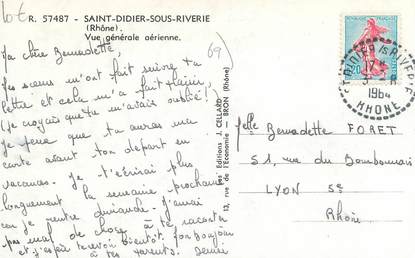 Lot
R. 57487 - SAINT-DIDIER-SOUS-RIVERIE
(Rhône).
Vue générale aérienne.
69)
Ma chère Bernadette,
Les sœurs m'ont fait suivre ta
lettre et cela m'a fait plaisir,
(je croyais que tu m'avais oublié!)
Je pense que tu auras ma
carte avant ton départ en
vacances. Je t'écrirai plus
longuement la semaine prochaine
car je rentre dimanche. J'aurai
pas mal de chose à te raconter
et j'espère te revoir bientôt. Bonjour
à tes parents.
Les Editions J. CELLARD
13, rue de l'Economie - BRON (Rhône)
0,20
ST DIDIER S/S RIVERIE
17
1964
RHONE
Melle Bernadette FORET
51, rue du Bourbonnais
LYON 5e
Rhône